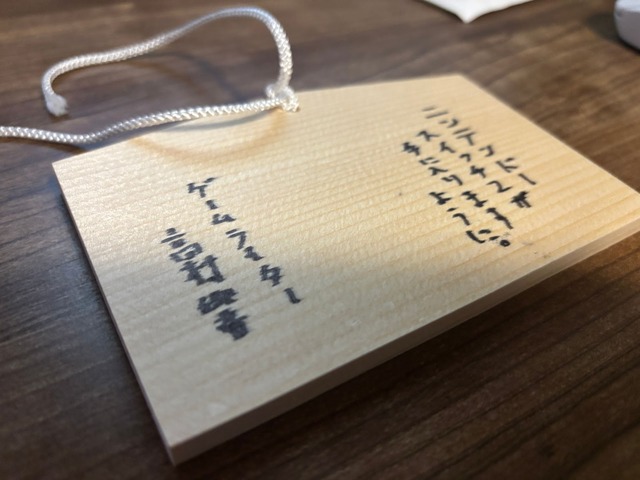 ニンテンドー
スイッチ2が
手に入りますように。
ゲームライター
高村 響